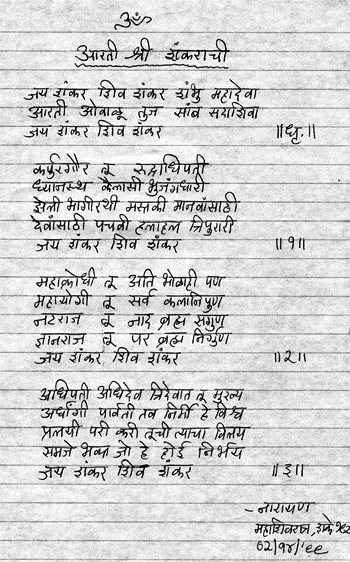 ॐ
आरती श्री शंकराची
जय शंकर शिव शंकर शंभु महादेवा
आरती ओवाळू तुज सांब सदाशिवा
जय शंकर शिव शंकर ॥धृ.॥
कर्पुरगौर तू रुद्राधिपती
ध्यानस्थ कैलासी भुजंगधारी
झेली भागीरथी मस्तकी मानवांसाठी
देवांसाठी पचवी हलाहल त्रिपुरारी
जय शंकर शिव शंकर ॥१॥
महाक्रोधी तू अति भोळाही पण
महायोगी तू सर्व कलानिपुण
नटराज तू नाद ब्रह्म सगुण
ज्ञानराज तू पर ब्रह्म निर्गुण
जय शंकर शिव शंकर ॥२॥
अधिपती अधिदेव त्रिदेवात तू मुख्य
अर्धांगी पार्वती तव निर्मी हे विश्व
प्रलयी परी करी तूची त्याचा विलय
समजे भक्त जो हे होई निर्भय
जय शंकर शिव शंकर ॥३॥
-नारायण
महाशिवरात्र, शके